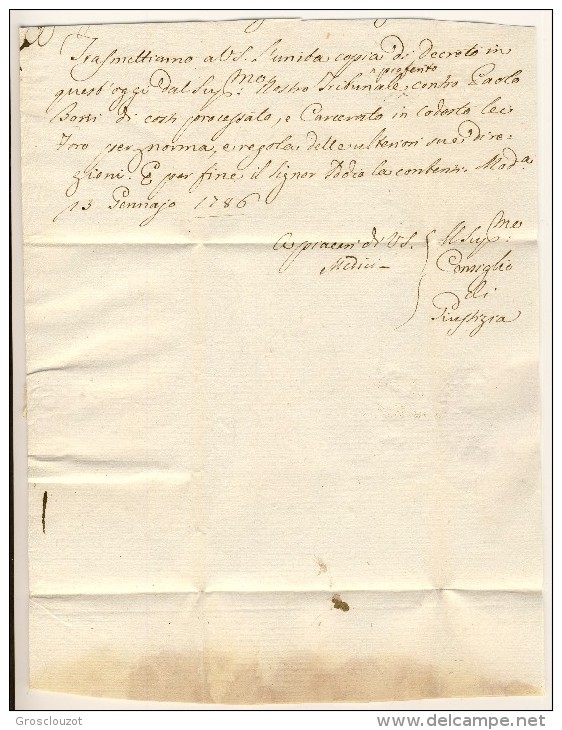 Trasmettiamo a V.S. l'unita copia di Decreto in
quest'oggi dal Sup.mo Nostro Tribunale proferito contro Paolo
Borsi di costì processato, e Carcerato in codesto
Foro per norma, e regola delle ulteriori sue dire-
zioni. E per fine il Signor Iddio la contenti. Mod.a
13 Gennajo 1786
A piaceri di V.S.
Medici
Il Sup.mo
Consiglio
di
Giustizia
Grosclouzot
www.delcampe.net